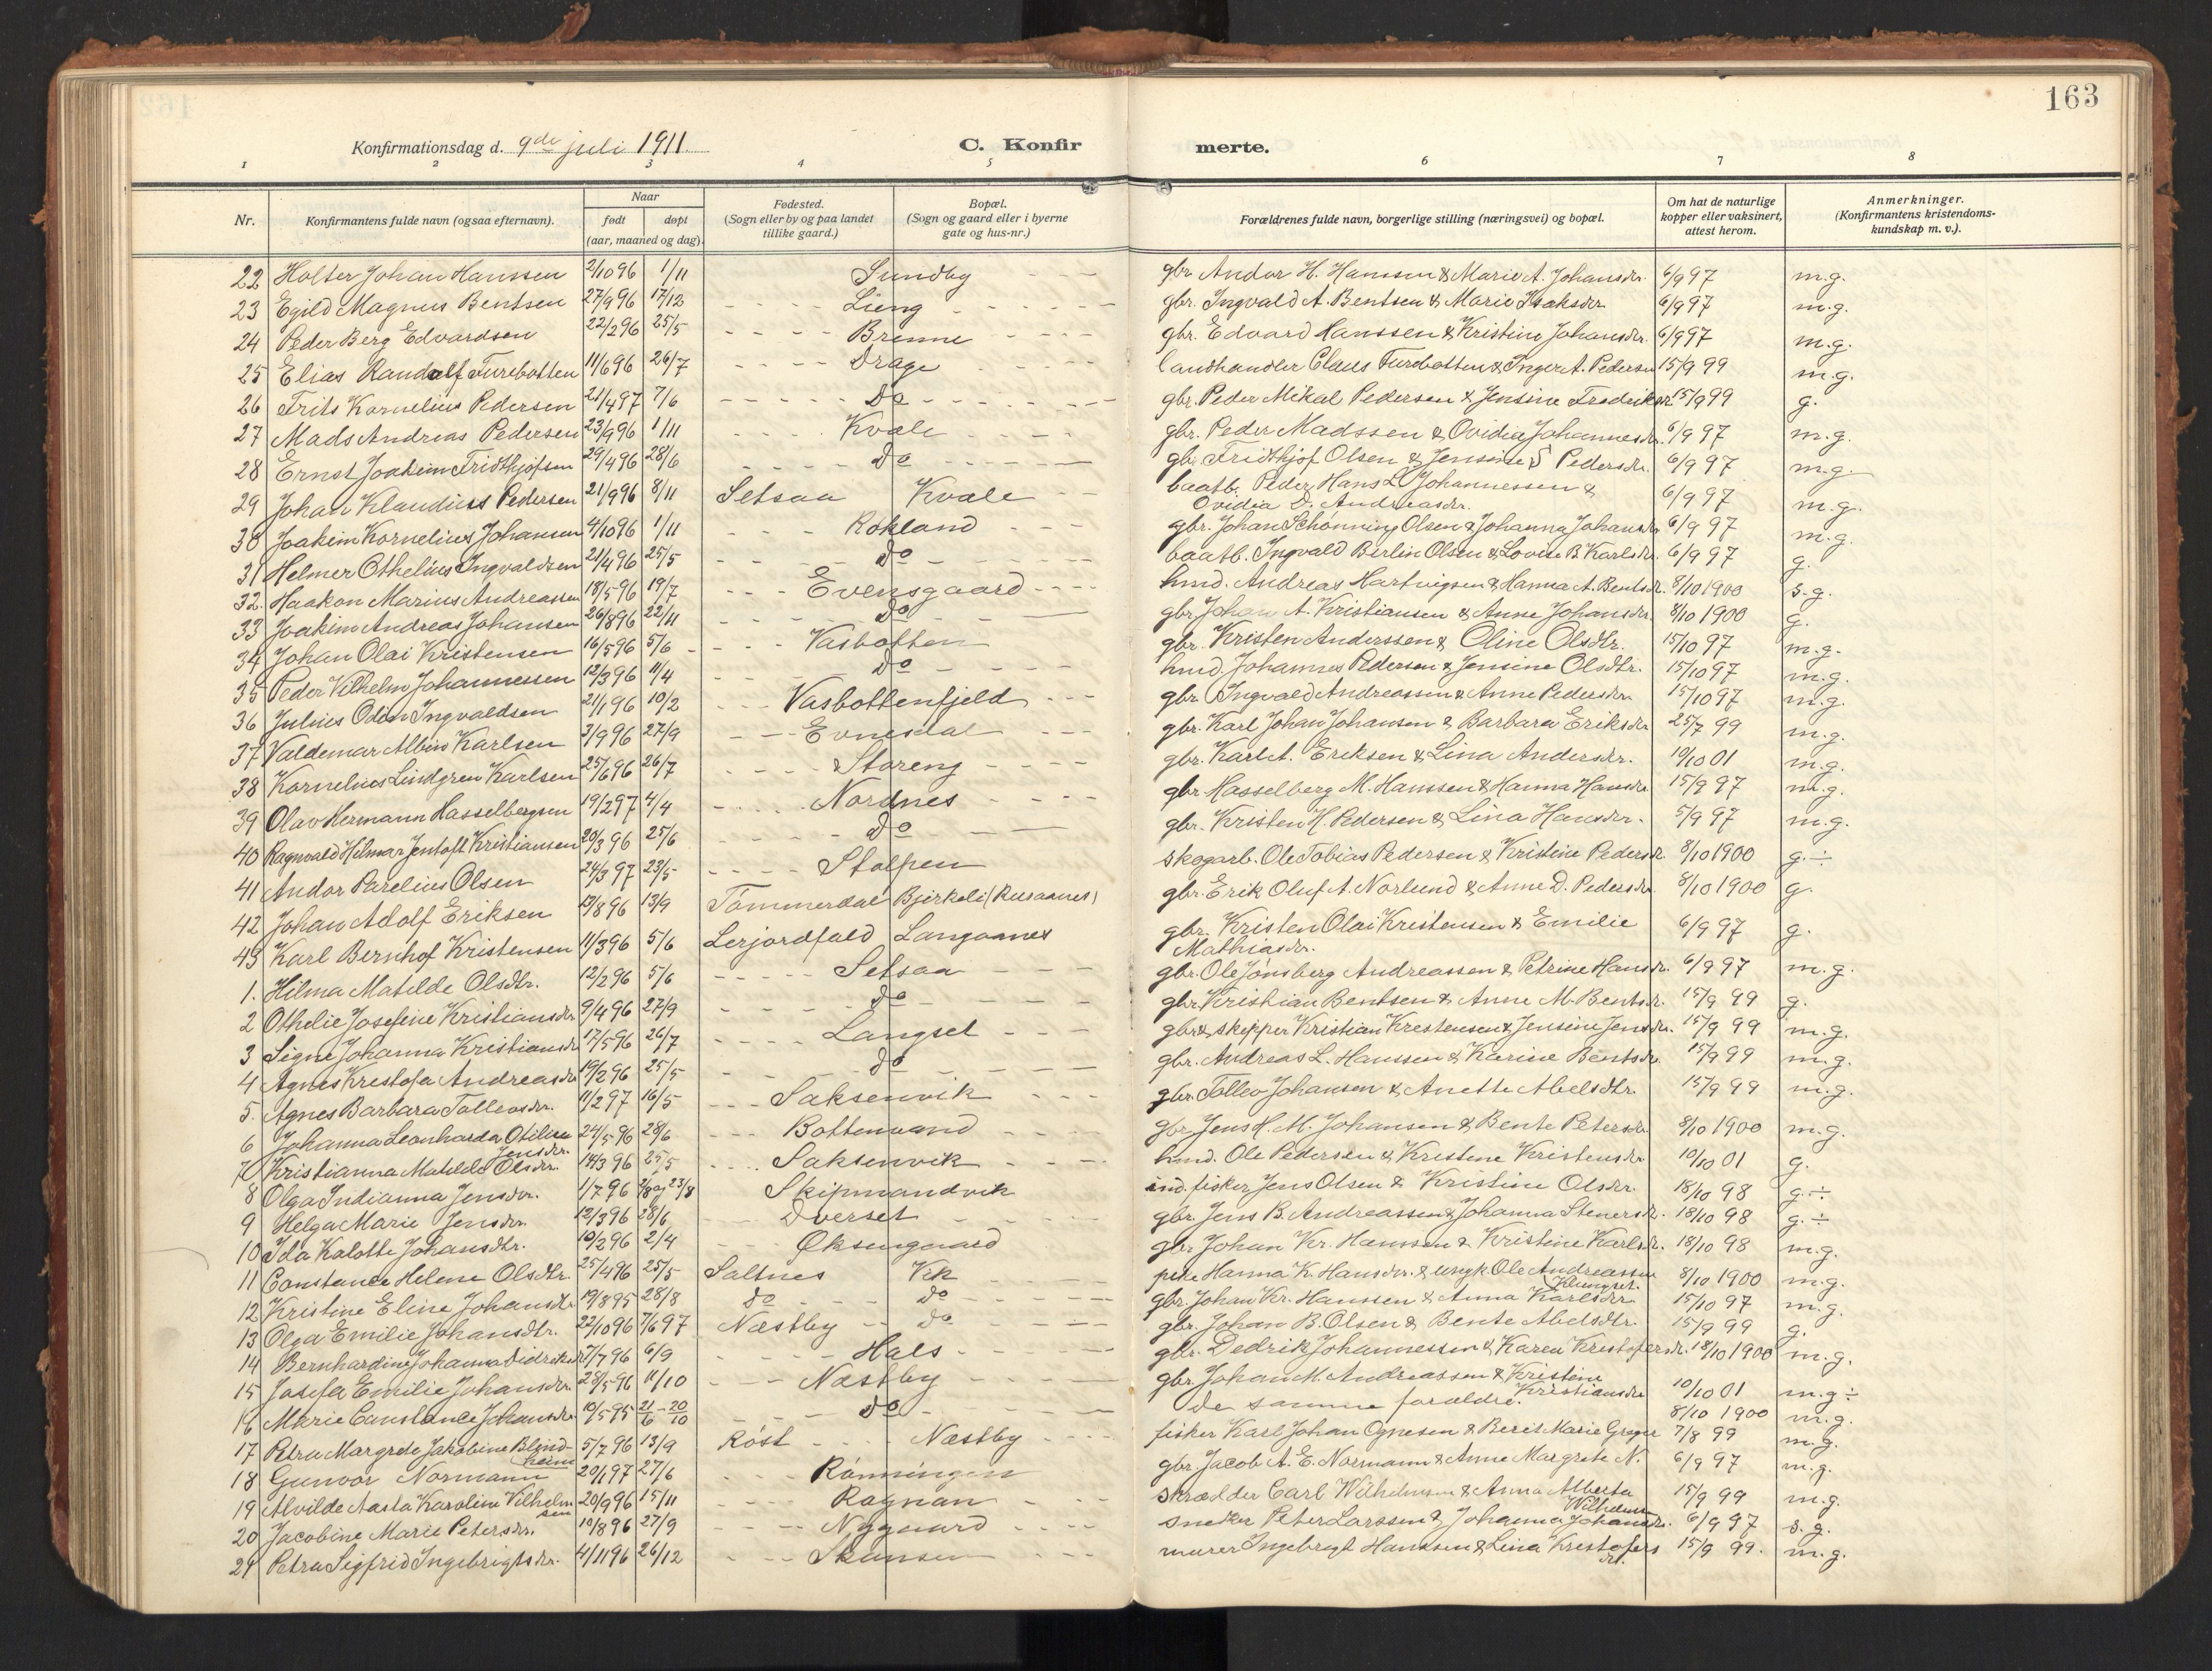 163
Konfirmationsdag d. 9de juli 1911.
C. Konfir merte.
1 2 3 4 5 6 7 8
Nr. Konfirmantens fulde navn (ogsaa efternavn). Naar født døpt (aar, maaned og dag). Fødested. (Sogn eller by og paa landet tillike gaard.) Bopæl. (Sogn og gaard eller i byerne gate og hus-nr.) Forældrenes fulde navn, borgerlige stilling (næringsvei) og bopæl. Om hat de naturlige kopper eller vaksinert, attest herom. Anmerkninger. (Konfirmantens kristendoms-kundskap m. v.).
22 Holter Johan Hanssen 2/10 96 1/11 Sundby gbr. Andor H. Hanssen & Marie A. Johansdr. 6/9 97 m.g.
23 Egild Magnus Bentsen 27/9 96 17/12 Lieng gbr. Ingvald A. Bentsen & Marie Isaksdr. 6/9 97 m.g.
24 Peder Berg Edvardsen 22/2 96 25/5 Brenne gbr. Edvard Hanssen & Kristine Johansdr. 6/9 97 m.g.
25 Elias Randolf Furebotten 11/6 96 26/7 Drage landhandler Claus Furebotten & Inger A. Pedersen 15/9 99 m.g.
26 Frits Kornelius Pedersen 21/4 97 7/6 Do gbr. Peder Mikal Pedersen & Jensine Fredriksdr. 15/9 99 g.
27 Mads Andreas Pedersen 23/9 96 1/11 Kvæle gbr. Peder Madssen & Ovidia Johannesdr. 6/9 97 m.g.
28 Ernst Joakim Fridthjofsen 29/4 96 28/6 Do gb. Fridthjof Olsen & Jensine S Pedersdr. 6/9 97 m.g.
29 Johan Klaudius Pedersen 21/9 96 8/11 Setsaa Kvæle baatb. Peder Hans L Johannessen & Ovidia D. Andreasdr. 6/9 97 m.g.
30 Joakim Kornelius Johansen 4/10 96 1/11 Rokland gbr. Johan Schønning Olsen & Johanna Johansdr. 6/9 97 m.g.
31 Helmer Othelius Ingvaldsen 21/4 96 25/5 Do baatb. Ingvald Berlin Olsen & Lovise B. Karlsdr. 6/9 97 g.
32. Haakon Marius Andreassen 18/5 96 19/7 Evensgaard hmd. Andreas Hartvigsen & Hanna A. Bentsdr. 8/10 1900 s.g.
33 Joakim Andreas Johansen 26/8 96 22/11 Do gbr. Johan A. Kristiansen & Anne Johansdr. 8/10 1900 g.
34 Johan Olai Kristensen 16/5 96 5/6 Vasbotten gbr. Kristen Anderssen & Oline Olsdtr. 15/10 97 m.g.
35 Peder Vilhelm Johannessen 12/3 96 11/4 Do hmd. Johannes Pedersen & Jensine Olsdtr. 15/10 97 m.g.
36 Julius Odin Ingvaldsen 21/1 96 10/2 Vasbottenfjeld gbr. Ingvald Andreassen & Anne Pedersdr. 15/10 97 m.g.
37 Valdemar Albin Karlsen 3/9 96 27/9 Evnesdal gbr. Karl Johan Johansen & Barbara Eriksdr. 25/7 99 m.g.
38 Kornelius Lindgren Karlsen 25/6 96 26/7 Storeng gbr. Karl A. Eriksen & Lina Andersdr. 10/10 01 m.g.
39 Olav Hermann Hasselbergsen 19/2 97 4/4 Nordnes gbr. Hasselberg M. Hanssen & Hanna Hansdr. 15/9 97 m.g.
40 Ragnvald Hilmar Jentoft Kristiansen 20/3 96 25/6 Do gbr. Kristen H. Pedersen & Lina Hansdr. 5/9 97 m.g.
41 Andor Parelius Olsen 24/3 97 23/5 Stolpen skogarb. Ole Tobias Pedersen & Kristine Pedersdr. 8/10 1900 g. ÷
42 Johan Adolf Eriksen 13/8 96 13/9 Tømmerdal Bjerkeli (Rusaanes) gbr. Erik Oluf A. Norlund & Anne D. Pedersdr. 8/10 1900 g.
43 Karl Bernhof Kristensen 11/3 96 5/6 Lerjordfald Langaanes gbr. Kristen Olai Kristensen & Emilie Mathiasdr. 6/9 97 g.
1. Hilma Matilde Olsdtr. 12/2 96 5/6 Setsaa gbr. Ole Jønsberg Andreassen & Petrine Hansdr. 6/9 97 m.g.
2 Othelie Josefine Kristiansdr. 9/4 96 27/9 Do gbr. Kristian Bentsen & Anne M. Bentsdr. 15/9 99 g.
3 Signe Johanna Kristiansdr. 17/5 96 26/7 Langset gbr. & skipper Kristian Krestensen & Jensine Jensdr. 15/9 99 m.g.
4 Agnes Krestofa Andreasdr. 19/2 96 25/5 Do gbr. Andreas L. Hanssen & Karine Bentsdr. 15/9 99 m.g.
5. Agnes Barbara Tollevsdr. 11/2 97 16/5 Saksenvik gbr. Tollev Johansen & Anette Abelsdtr. 15/9 99 m.g.
6 Johanna Leonharda Otilie Jensdr. 24/5 96 28/6 Bottenvand gbr. Jens H. M. Johansen & Bente Petersdr. 8/10 1900 m.g.
7 Kristianna Matilde Olsdr. 14/3 96 25/5 Saksenvik hmd. Ole Pedersen & Kristine Kristensdr. 10/10 01 g.
8 Olga Indianna Jensdr. 1/7 96 2/8 og 23/8 Skipmandvik ind. fisker Jens Olsen & Kristine Olsdr. 18/10 98 g. ÷
9 Helga Marie Jensdr. 12/3 96 28/6 Dverset gbr. Jens B. Andreassen & Johanna Stenersdr. 18/10 98 g. ÷
10 Ida Kalotte Johansdtr. 10/2 96 2/4 Øksengaard gbr. Johan Kr. Hanssen & Kristine Karlsdr. 18/10 98 m.g.
11 Constance Helene Olsdtr. 25/4 96 25/5 Saltnes Vik pike Hanna K. Hansdr. & ungk. Ole Andreassen Klungset. 8/10 1900 m.g.
12 Kristine Eline Johansdr. 19/8 95 28/8 Do Do gbr. Johan Kr. Hanssen & Anna Karlsdr. 15/10 97 m.g.
13 Olga Emilie Johansdtr. 22/10 96 7/6 97 Næstby Do gbr. Johan B. Olsen & Bente Abelsdtr. 15/9 99 g.
14 Bernhardine Johanna Didriksdr. 7/7 96 6/9 Hals gbr. Dedrik Johannessen & Karen Kristofersdr. 18/10 1900 m.g.
15 Josefa Emilie Johansdr. 28/5 96 11/10 Næstby gbr. Johan M. Andreassen & Kristine Kristiansdr. 10/10 01 m.g. ÷
16 Marie Constance Johansdr. 10/5 95 21/6 - 20/10 Do De samme forældre. 8/10 1900 m.g.
17 Petra Margrete Jakobine Blindheim 5/7 96 13/9 Røst Næstby fisker Karl Johan Ognesen & Berit Marie 7/8 99 m.g.
18 Gunvor Normann 20/1 97 27/6 Rønningen gbr. Jacob A. E. Normann & Anne Margrete N. 6/9 97 m.g.
19 Alvilde Aasta Karoline Vilhelmsen 20/9 96 15/11 Rognan skrædder Carl Wilhelmsen & Anna Alberta Wilhelmsen 15/9 99 m.g.
20 Jacobine Marie Petersdr. 10/8 96 27/9 Nygaard snedker Peter Larssen & Johanna Johansdr. 6/9 97 s.g.
21 Petra Sigfrid Ingebrigtsdr. 4/11 96 26/12 Skansen murer Ingebrigt Hanssen & Lina Krestofersdr. 15/9 99. m.g.